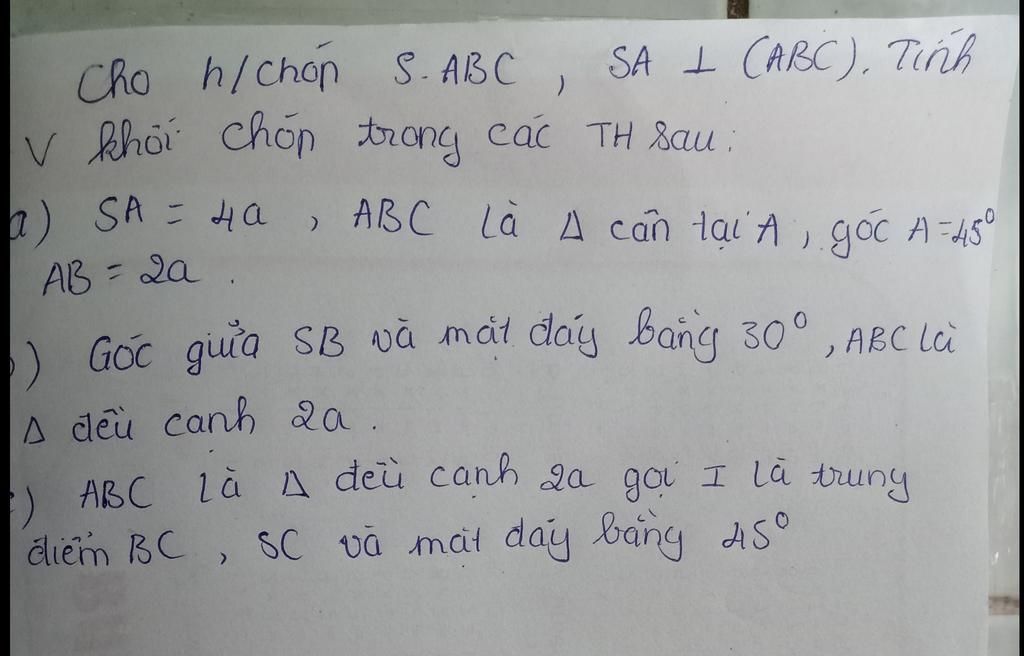 Cho h/chóp S.ABC, SA ⊥ (ABC). Tính
V khối chóp trong các TH sau:
a) SA = 4a, ABC là Δ cân tại A, góc A=45°
AB = 2a.
b) Góc giữa SB và mặt đáy bằng 30°, ABC là
Δ đều cạnh 2a.
c) ABC là Δ đều cạnh 2a gọi I là trung
điểm BC, SC và mặt đáy bằng 45°